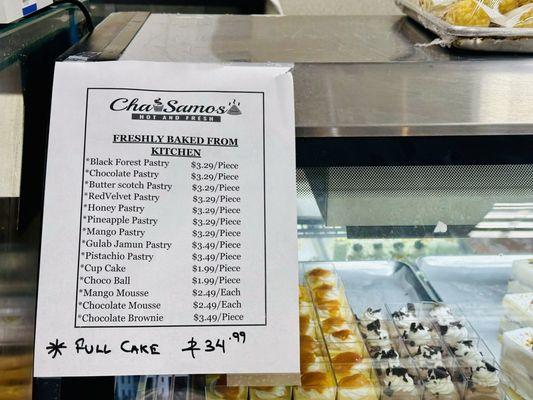 ChaSamos
HOT AND FRESH
FRESHLY BAKED FROM
KITCHEN
*Black Forest Pastry $3.29/Piece
*Chocolate Pastry $3.29/Piece
*Butter scotch Pastry $3.29/Piece
*RedVelvet Pastry $3.29/Piece
*Honey Pastry $3.29/Piece
*Pineapple Pastry $3.29/Piece
*Mango Pastry $3.29/Piece
*Gulab Jamun Pastry $3.49/Piece
*Pistachio Pastry $3.49/Piece
*Cup Cake $1.99/Piece
*Choco Ball $1.99/Piece
*Mango Mousse $2.49/Each
*Chocolate Mousse $2.49/Each
*Chocolate Brownie $3.49/Piece
* FULL CAKE $34.99